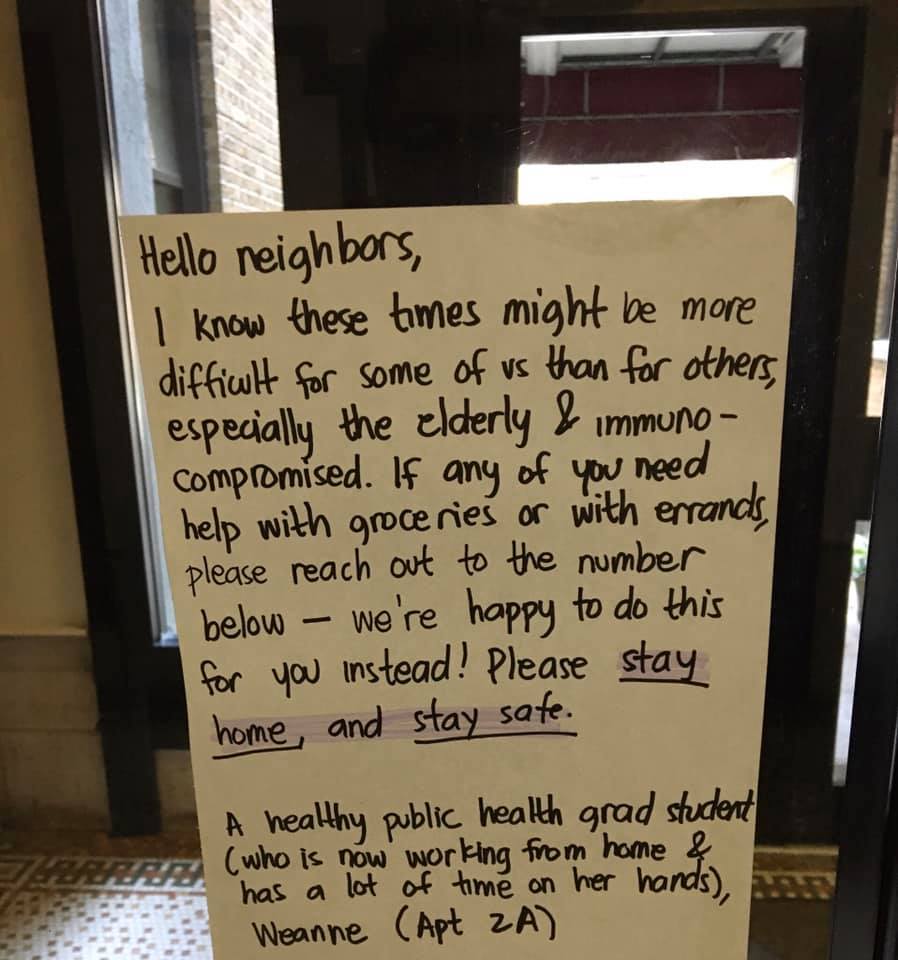 Hello neighbors,
I know these times might be more
difficult for some of us than for others,
especially the elderly & immuno-
compromised. If any of you need
help with groceries or with errands,
please reach out to the number
below — we're happy to do this
for you instead! Please stay
home, and stay safe.
A healthy public health grad student
(who is now working from home &
has a lot of time on her hands),
Weanne (Apt 2A)